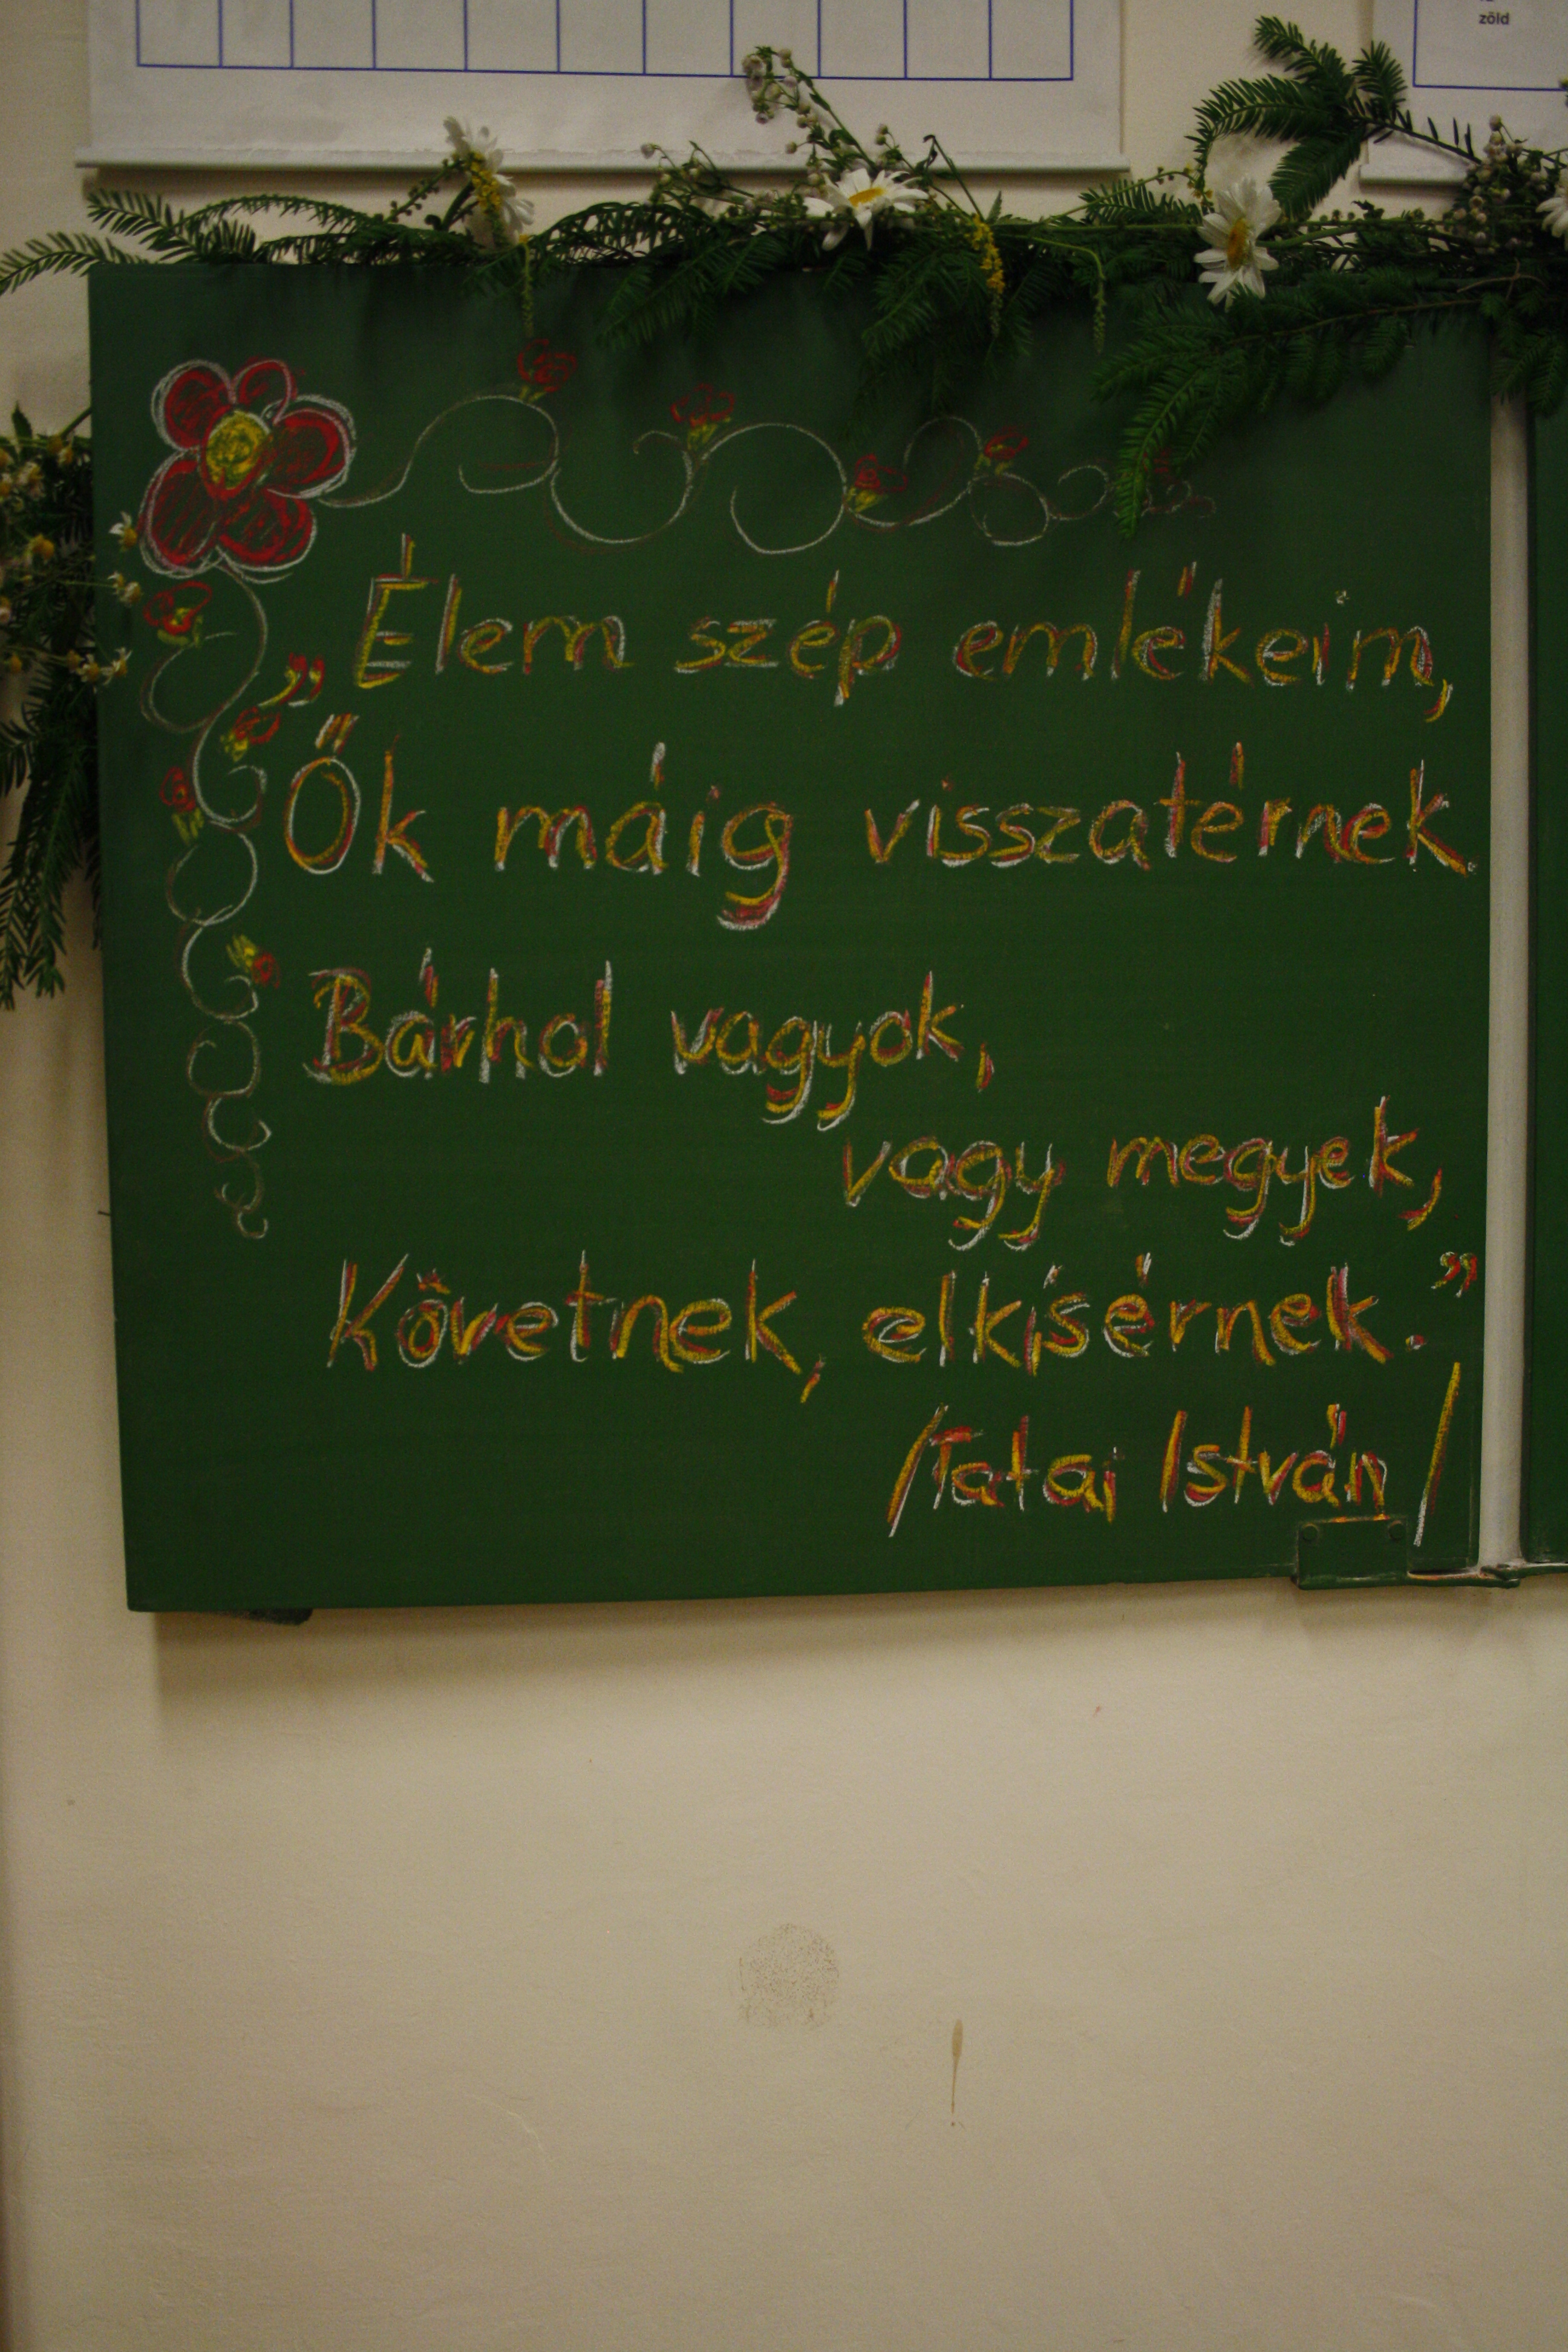 zöld
„Élem szép emlékeim,
Ők máig visszatérnek.
Bárhol vagyok,
vagy megyek,
Követnek, elkísérnek.”
/Tatai István/